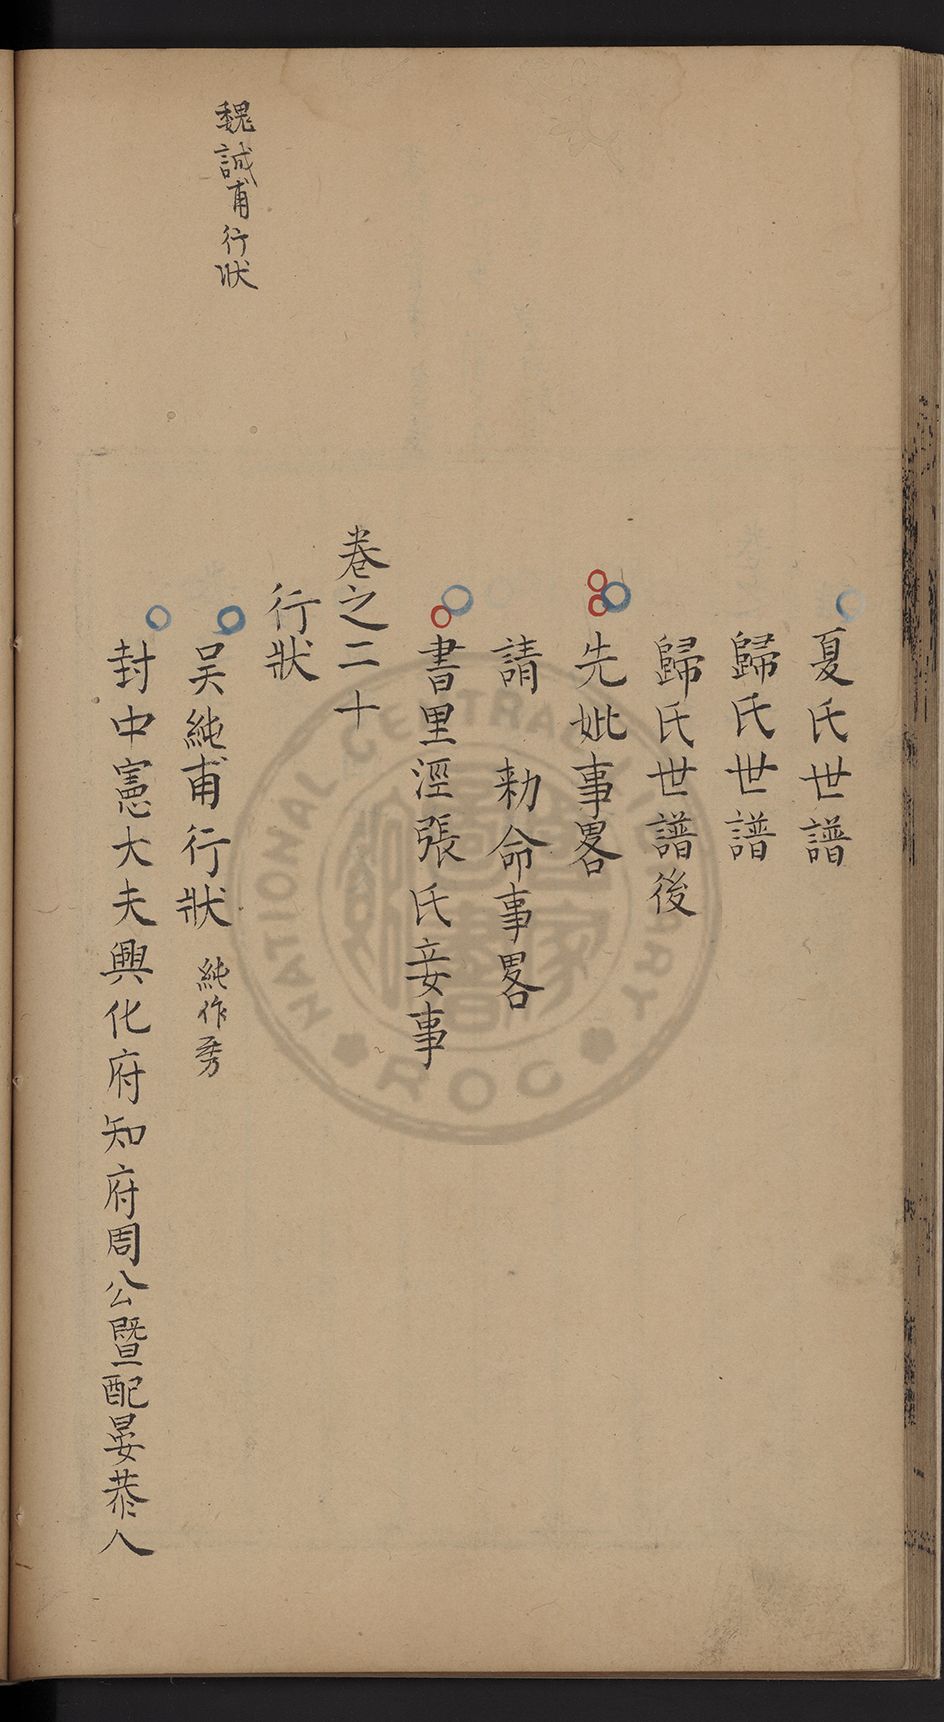 夏氏世譜
歸氏世譜
歸氏世譜後
先妣事畧
請　勅命事畧
書里涇張氏妾事
卷之二十
行狀
吴純甫行狀 純作秀
魏誠甫行狀
封中憲大夫興化府知府周公暨配晏恭人
NATIONAL CENTRAL LIBRARY
ROC
國家圖書館